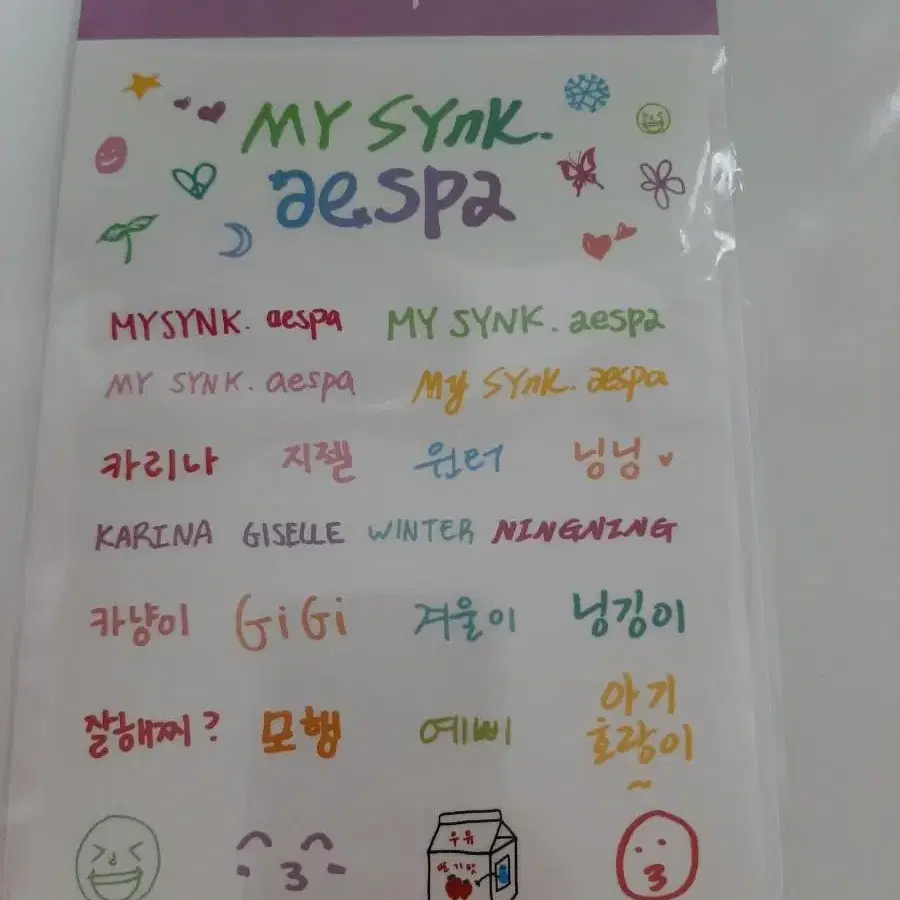 MY SYNK.
aespa
MY SYNK. aespa MY SYNK. aespa
MY SYNK. aespa My SYnK. aespa
카리나 지젤 윈터 닝닝
KARINA GISELLE WINTER NINGNING
카냥이 GiGi 겨울이 닝깅이
잘해찌? 모행 예삐 아기
호랑이
~
우유
딸기맛